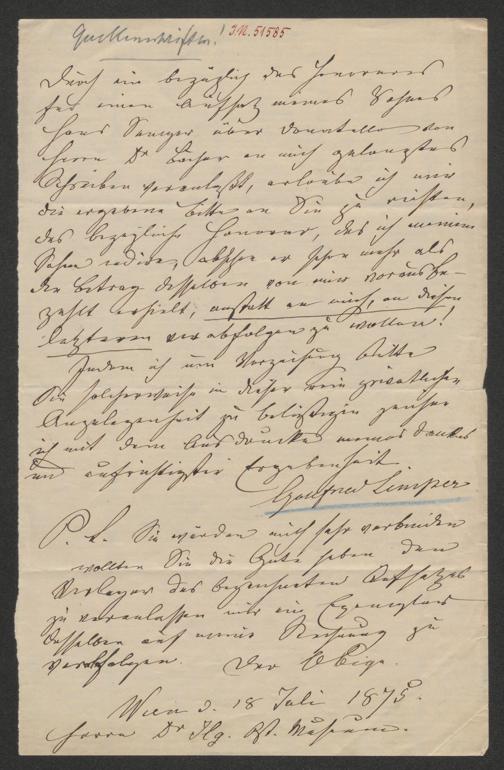 Quellenschriften! I.N. 51585
Durch ein bezüglich des Honorares
für einen Aufsatz meines Sohnes
Hans Semper über Donatello von
Herrn Dr Lochar an mich gelangtes
Schreiben veranlaßt, erlaube ich mir
die ergebene Bitte an Sie zu richten,
das bezügliche Honorar, das ich meinem
Sohne cedire, obschon er schon mehr als
den Betrag desselben von mir vorausbe-
zahlt erhielt, anstatt an mich, an diesen
letzteren verabfolgen zu wollen!
Indem ich um Verzeihung bitte
Sie solcherweise in dieser rein privatlichen
Angelegenheit zu belästigen zeichne
ich mit dem Ausdrucke meines Dankes
und aufrichtigster Ergebenheit.
Gottfried Semper
P. S. Sie würden mich sehr verbinden
wollten Sie die Güte haben den
Verleger des bezeichneten Aufsatzes
zu veranlassen mir ein Exemplar
desselben auf meine Rechnung zu
verabfolgen. Der Obige.
Wien d. 18 Juli 1875.
Herrn Dr Ilg. Öst. Museum.